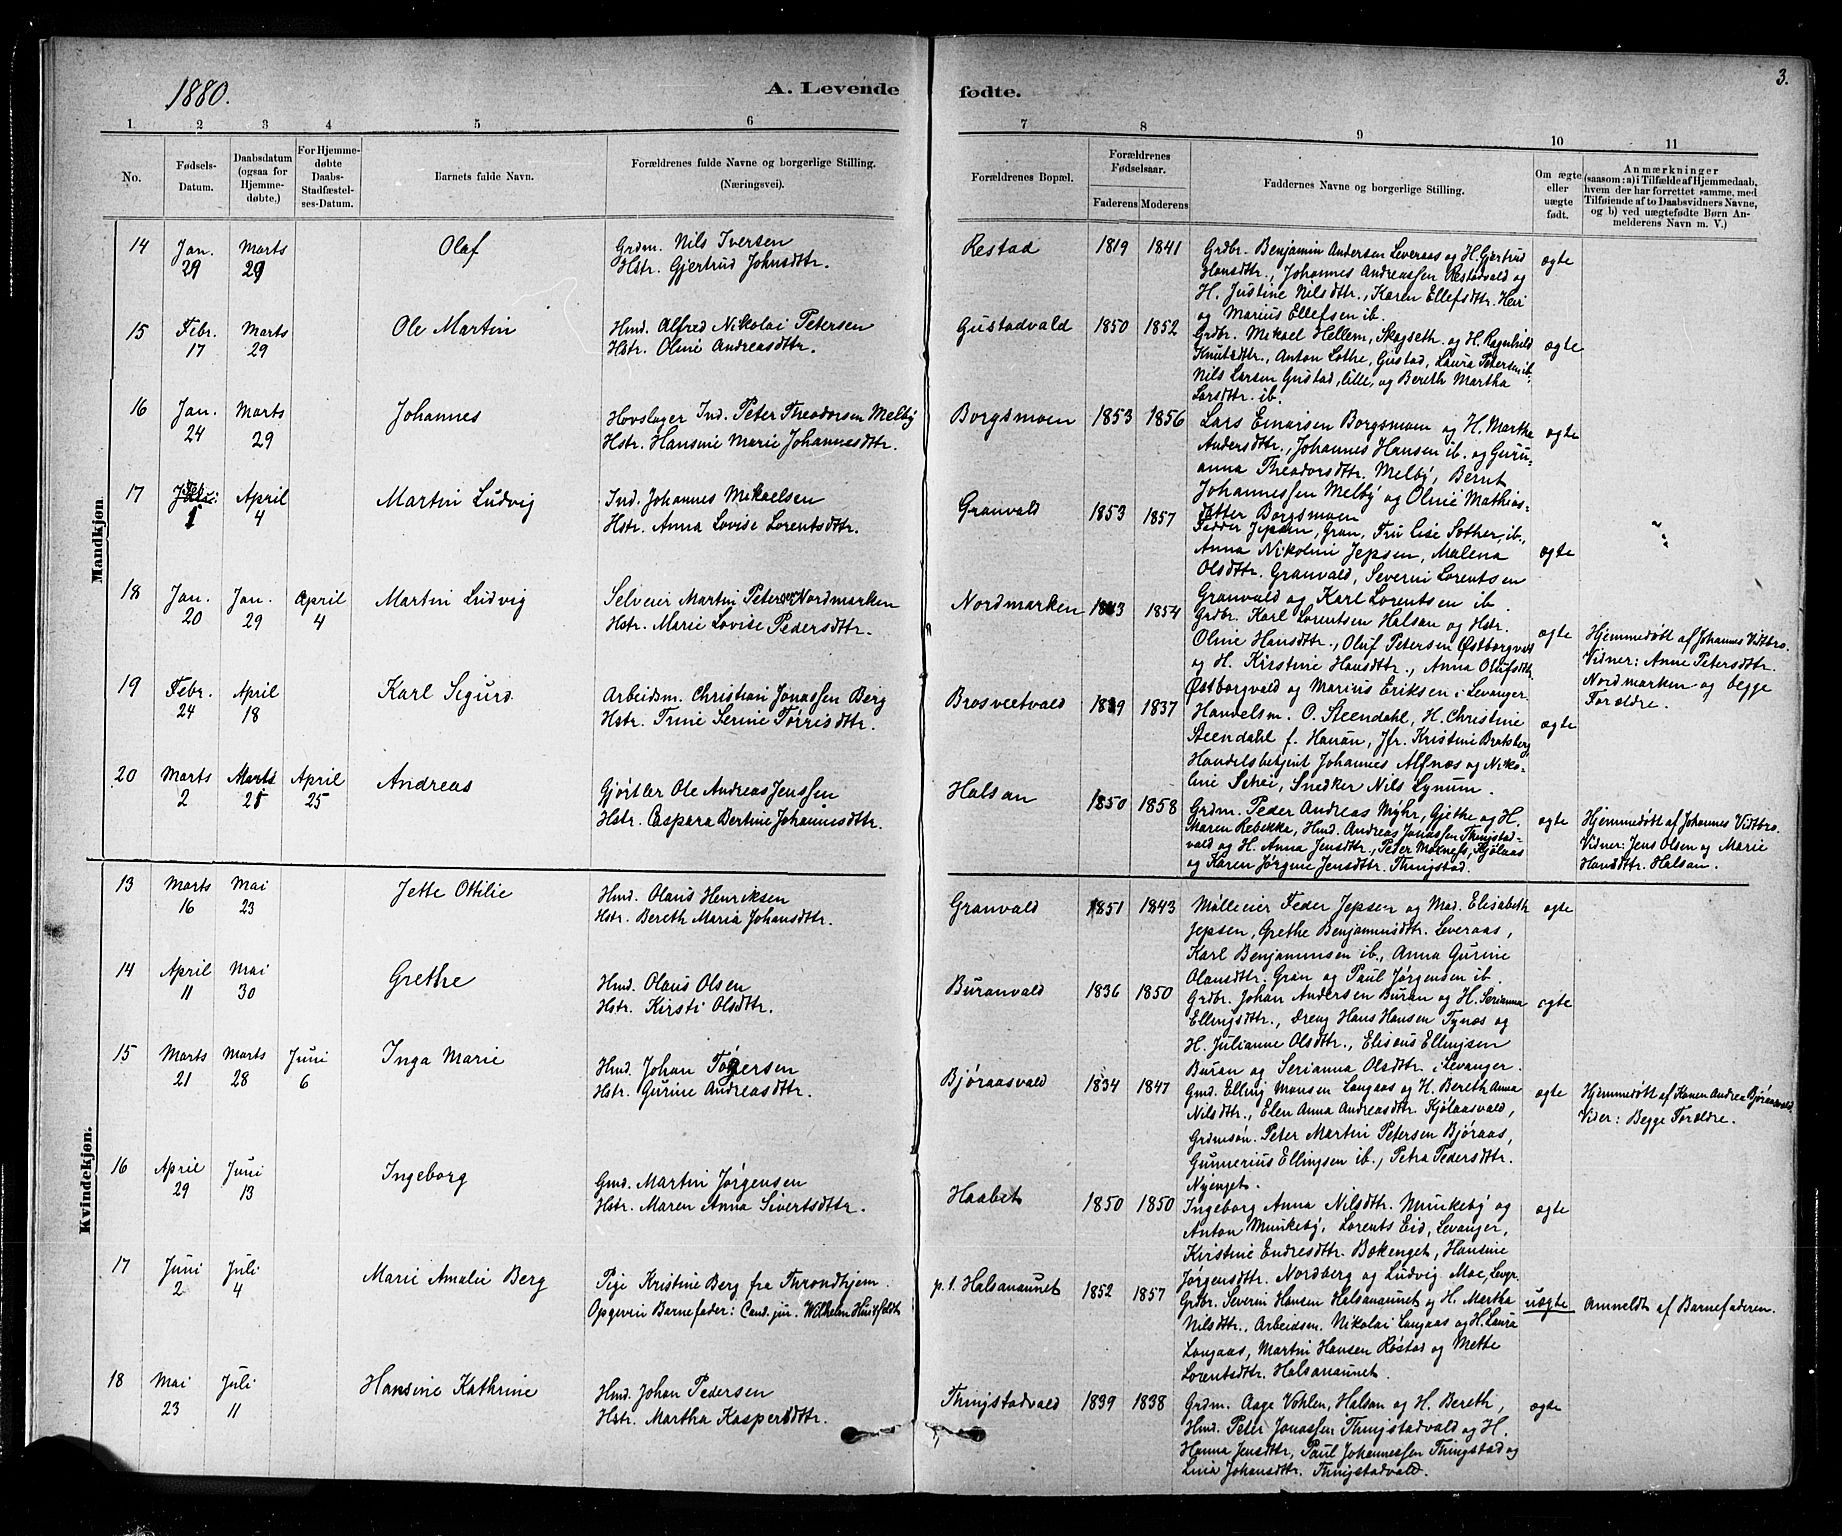 1880.
A. Levende fødte.
3.
1. 2 3 4 5 6 7 8 9 10 11
No.
Fødsels-Datum.
Daabsdatum (ogsaa for Hjemmedøbte.)
For Hjemmedøbte Daabs-Stadfæstelses-Datum.
Barnets fulde Navn.
Forældrenes fulde Navne og borgerlige Stilling. (Næringsvei).
Forældrenes Bopæl.
Forældrenes Fødselsaar.
Faderens Moderens
Faddernes Navne og borgerlige Stilling.
Om ægte eller uægte født.
Anmærkninger
(saasom: a) i Tilfælde af Hjemmedaab,
hvem der har forrettet samme, med
Tilføiende af to Daabsvidners Navne,
og b) ved uægtefødte Børn An-
melderens Navn m. V.)
Mandkjøn.
14 Jan. 29 Marts 29 Olaf
Grdm. Nils Iversen
Hstr. Gjertrud Johnsdttr.
Restad 1819 1841
Grdbr. Benjamin Andersen Leveraas og H. Gjertrud
Hansdttr., Johannes Andreassen Restadvald og
H. Justine Nilsdttr., Karen Ellefsdttr. Heir
og Marius Ellefsen ib.
ægte
15 Febr. 17 Marts 29 Ole Martin
Hmd. Alfred Nikolai Petersen
Hstr. Oline Andreasdttr.
Gustadvald 1850 1852
Grdbr. Mikael Hellem, Skogseth og H. Ragnhild
Knutsdttr., Anton Lothe, Gustad, Laura Petersen ib.
Nils Larsen Gustad, lille, og Bereth Martha
Larsdttr. ib.
ægte
16 Jan. 24 Marts 29 Johannes
Hovslager Ind. Peter Theodorsen Melby
Hstr. Hansine Marie Johannesdttr.
Borgsmoen 1853 1856
Lars Einarsen Borgsmoen og H. Martha
Andersdttr., Johannes Hansen ib. og Guru-
anna Theodorsdttr. Melby, Bernt
Johannessen Melby og Oline Mathias-
datter Borgsmoen
ægte
17 Feb. 1 April 4 Martin Ludvig
Ind. Johannes Mikaelsen
Hstr. Anna Lovise Lorentsdttr.
Granvald 1853 1857
Fedder Jepsen, Gran, Fru Lise Sother, ib.,
Anna Nikolini Jepsen, Malena
Olsdttr. Granvald, Severin Lorentsen
Granvald og Karl Lorentsen ib.
ægte
18 Jan. 20 Jan. 29 April 4 Martin Ludvig
Selveier Martin Petersen Nordmarken
Hstr. Marie Lovise Pedersdttr.
Nordmarken 1854
Grdbr. Karl Lorentsen Halsan og Hstr.
Oline Hansdttr., Oluf Petersen Østborgvald
og H. Kirstine Hansdttr., Anna Olufsdttr.
Østborgvald og Marius Eriksen i Levanger
ægte
Hjemmedøbt af Johannes Vidtbro.
Vidner: Anne Petersdttr.
Nordmarken og begge
Forældre.
19 Febr. 24 April 18 Karl Sigurd
Arbeidsm. Christian Jonassen Berg
Hstr. Trine Serine Tørrisdttr.
Brosveetvald 1839 1837
Handelsm. O. Steendahl, H. Christine
Steendahl f. Hanan, Jfr. Kristine Bratsberg
Handelsbetjent Johannes Alfnæs og Niko-
line Schei, Snedker Nils Lynum.
ægte
20 Marts 2 Marts 21 April 25 Andreas
Gjørtler Ole Andreas Jenssen
Hstr. Caspara Bertine Johannisdttr.
Halsan 1850 1858
Grdm. Peder Andreas Myhr, Gjethe og H.
Maren Rebekka, Hmd. Andreas Jonassen Thingstad-
vald og H. Anna Jensdttr., Peter Moxness, Kjølaas
og Karen Jørgine Jensdttr. Thingstad.
ægte
Hjemmedøbt af Johannes Vidtbro.
Vidner: Jens Olsen og Marie
Hansdttr. Halsan.
Kvindekjøn.
13 Marts 16 Mai 23 Jette Ottilie
Hmd. Olaus Henriksen
Hstr. Bereth Maria Johansdttr.
Granvald 1851 1843
Mølleeier Feder Jepsen og Mad. Elisabeth
Jepsen, Grethe Benjaminsdttr. Leveraas,
Karl Benjaminsen ib., Anna Gurine
Olausdttr. Gran og Paul Jørgensen ib.
ægte
14 April 11 Mai 30 Grethe
Hmd. Olaus Olsen
Hstr. Kirsti Olsdttr.
Buranvald 1836 1850
Grdbr. Johan Andersen Buran og H. Serianna
Ellingsdttr., Dreng Hans Hansen Tynæs og
H. Julianne Olsdttr., Elisæus Ellingsen
Buran og Serianna Olsdttr. i Levanger.
ægte
15 Marts 21 Marts 28 Juni 6 Inga Marie
Hmd. Johan Tøgersen
Hstr. Gurine Andreasdttr.
Bjøraasvald 1834 1847
Gmd. Elling Monsen Langaas og H. Bereth Anna
Nilsdttr., Elen Anna Andreasdttr. Kjølaasvald,
Grdmsøn. Peter Martin Petersen Bjøraas,
Gunnerius Ellingsen ib., Petra Pedersdttr.
Nyenget.
ægte
Hjemmedøbt af Konen Andrea Bjøraasvald
Vider: Begge Forældre.
16 April 29 Juni 13 Ingeborg
Gmd. Martin Jørgensen
Hstr. Maren Anna Sivertsdttr.
Haabet 1850 1850
Ingeborg Anna Nilsdttr. Munkeby og
Anton Munkeby, Lorents Eid, Levanger,
Kirstine Endresdttr. Bækenget, Hansine
Jørgensdttr. Nordberg og Ludvig Moe, Levgr.
ægte
17 Juni 2 Juli 4 Marie Amalie Berg
Pige Kristine Berg fra Throndhjem.
Opgiven Barnefader: Cand. jur. Wilhelm Huitfeldt
p.t. Halsanaunet 1852 1857
Grdbr. Severin Hansen Halsanaunet og H. Martha
Nilsdttr., Arbeidsm. Nikolai Langaas og H. Laura
Langaas, Martin Hansen Røstad og Mette
Lorentsdttr. Halsanaunet.
uægte
Anmeldt af Barnefaderen.
18 Mai 23 Juli 11 Hansine Kathrine
Hmd. Johan Pedersen
Hstr. Martha Kaspersdttr.
Thingstadvald 1839 1838
Grdm. Aage Vohlen, Halsan og H. Bereth,
Hmd. Peter Jonassen Thingstadvald og H.
Hanna Jensdttr., Paul Johannessen Thingstad og
Lina Johansdttr. Thingstadvald.
ægte